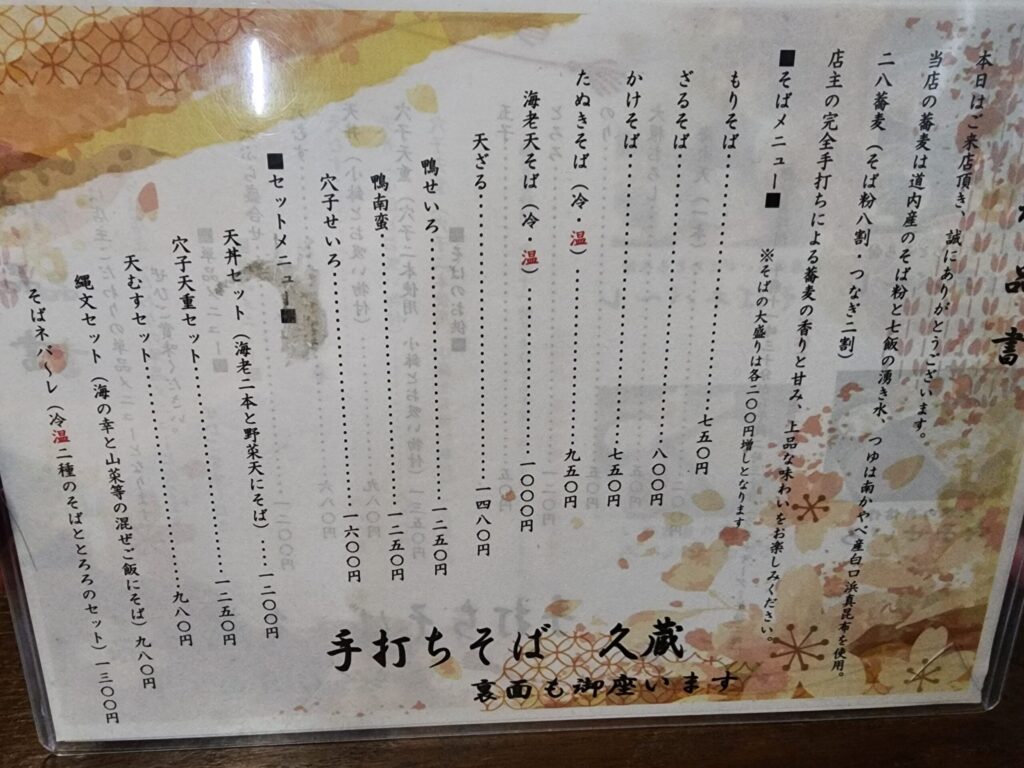 品書
本日はご来店頂き、誠にありがとうございます。
当店の蕎麦は道内産のそば粉と七飯の湧き水、つゆは南かやべ産白口浜真昆布を使用。
二八蕎麦（そば粉八割・つなぎ二割）
店主の完全手打ちによる蕎麦の香りと甘み、上品な味わいをお楽しみください。
■そばメニュー■
※そばの大盛りは各二〇〇円増しとなります
もりそば……………………七五〇円
ざるそば……………………八〇〇円
かけそば……………………七五〇円
たぬきそば（冷・温）……………………九五〇円
海老天そば（冷・温）……………………一〇〇〇円
天ざる……………………一四八〇円
鴨せいろ……………………一二五〇円
鴨南蛮……………………一二五〇円
穴子せいろ……………………一六〇〇円
■セットメニュー■
天丼セット（海老二本と野菜天にそば）……一二〇〇円
穴子天重セット……………………一二五〇円
天むすセット……………………九八〇円
縄文セット（海の幸と山菜等の混ぜご飯にそば）九八〇円
そばネバ〜レ（冷温二種のそばととろろのセット）一三〇〇円
手打ちそば 久蔵
裏面も御座います